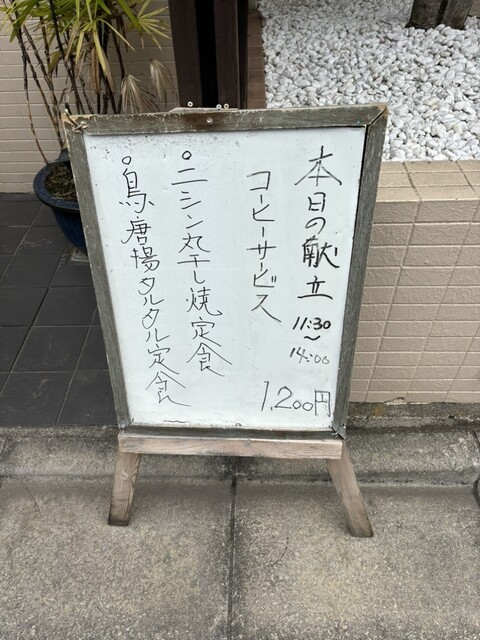 本日の献立
11:30
〜
14:00
1,200円
コーヒーサービス
○ニシン丸干し焼定食
○鳥唐揚タルタル定食